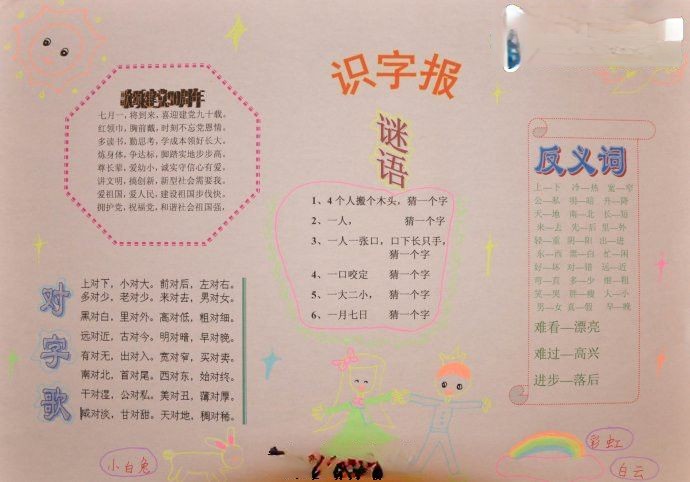 识字报
歌颂建党90周年
七月一，将到来，喜迎建党九十载。
红领巾，胸前戴，时刻不忘党恩情。
多读书，勤思考，学成本领好长大。
炼身体，争达标，脚踏实地步步高。
尊长辈，爱幼小，诚实守信心有爱。
讲文明，搞创新，新型社会需要我。
爱祖国，爱人民，建设祖国步伐快。
拥护党，祝福党，和谐社会祖国强。
谜语
1、4个人搬个木头，猜一个字
2、一人， 猜一个字
3、一人一张口，口下长只手，
猜一个字
4、一口咬定 猜一个字
5、一大二小， 猜一个字
6、一月七日 猜一个字
反义词
上—下 冷—热 宽—窄
公—私 明—暗 升—降
天—地 南—北 长—短
来—去 先—后 里—外
轻—重 阴—阳 出—进
东—西 黑—白 忙—闲
好—坏 对—错 远—近
弯—直 多—少 粗—细
笑—哭 胖—瘦 大—小
男—女 真—假 早—晚
难看—漂亮
难过—高兴
进步—落后
对字歌
上对下，小对大。前对后，左对右。
多对少，老对少。来对去，男对女。
黑对白，里对外。高对低，粗对细。
远对近，古对今。明对暗，早对晚。
有对无，出对入。宽对窄，买对卖。
南对北，首对尾。西对东，始对终。
干对湿，公对私。美对丑，薄对厚。
咸对淡，甘对甜。天对地，稠对稀。
小白兔
彩虹
白云